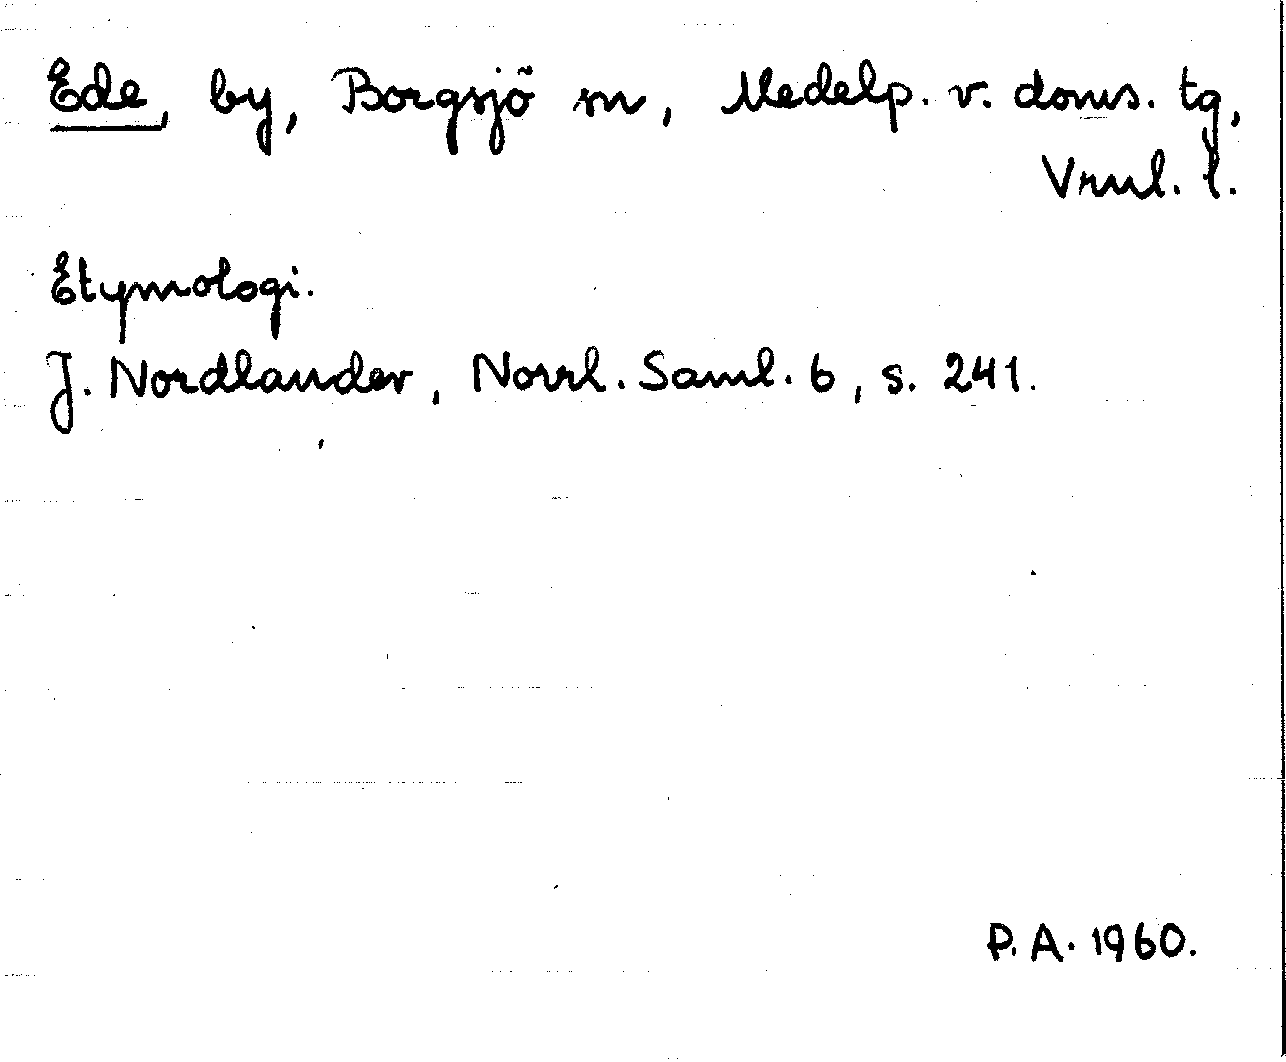 Ede, by, Borgsjö sn, Medelp. v. doms. tg,
Vrnl. l.
Etymologi.
J. Nordlander, Norrl. Saml. 6, s. 241.
P. A. 1960.